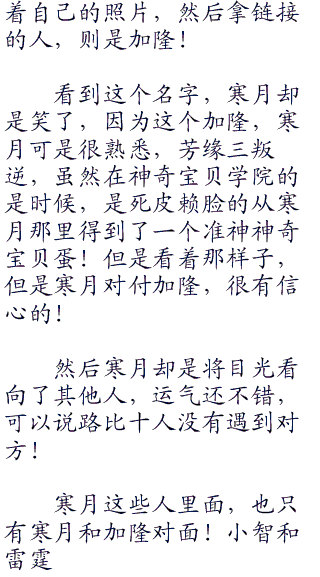 着自己的照片，然后拿链接
的人，则是加隆！
看到这个名字，寒月却
是笑了，因为这个加隆，寒
月可是很熟悉，芳缘三叛
逆，虽然在神奇宝贝学院的
是时候，是死皮赖脸的从寒
月那里得到了一个准神神奇
宝贝蛋！但是看着那样子，
但是寒月对付加隆，很有信
心的！
然后寒月却是将目光看
向了其他人，运气还不错，
可以说路比十人没有遇到对
方！
寒月这些人里面，也只
有寒月和加隆对面！小智和
雷霆